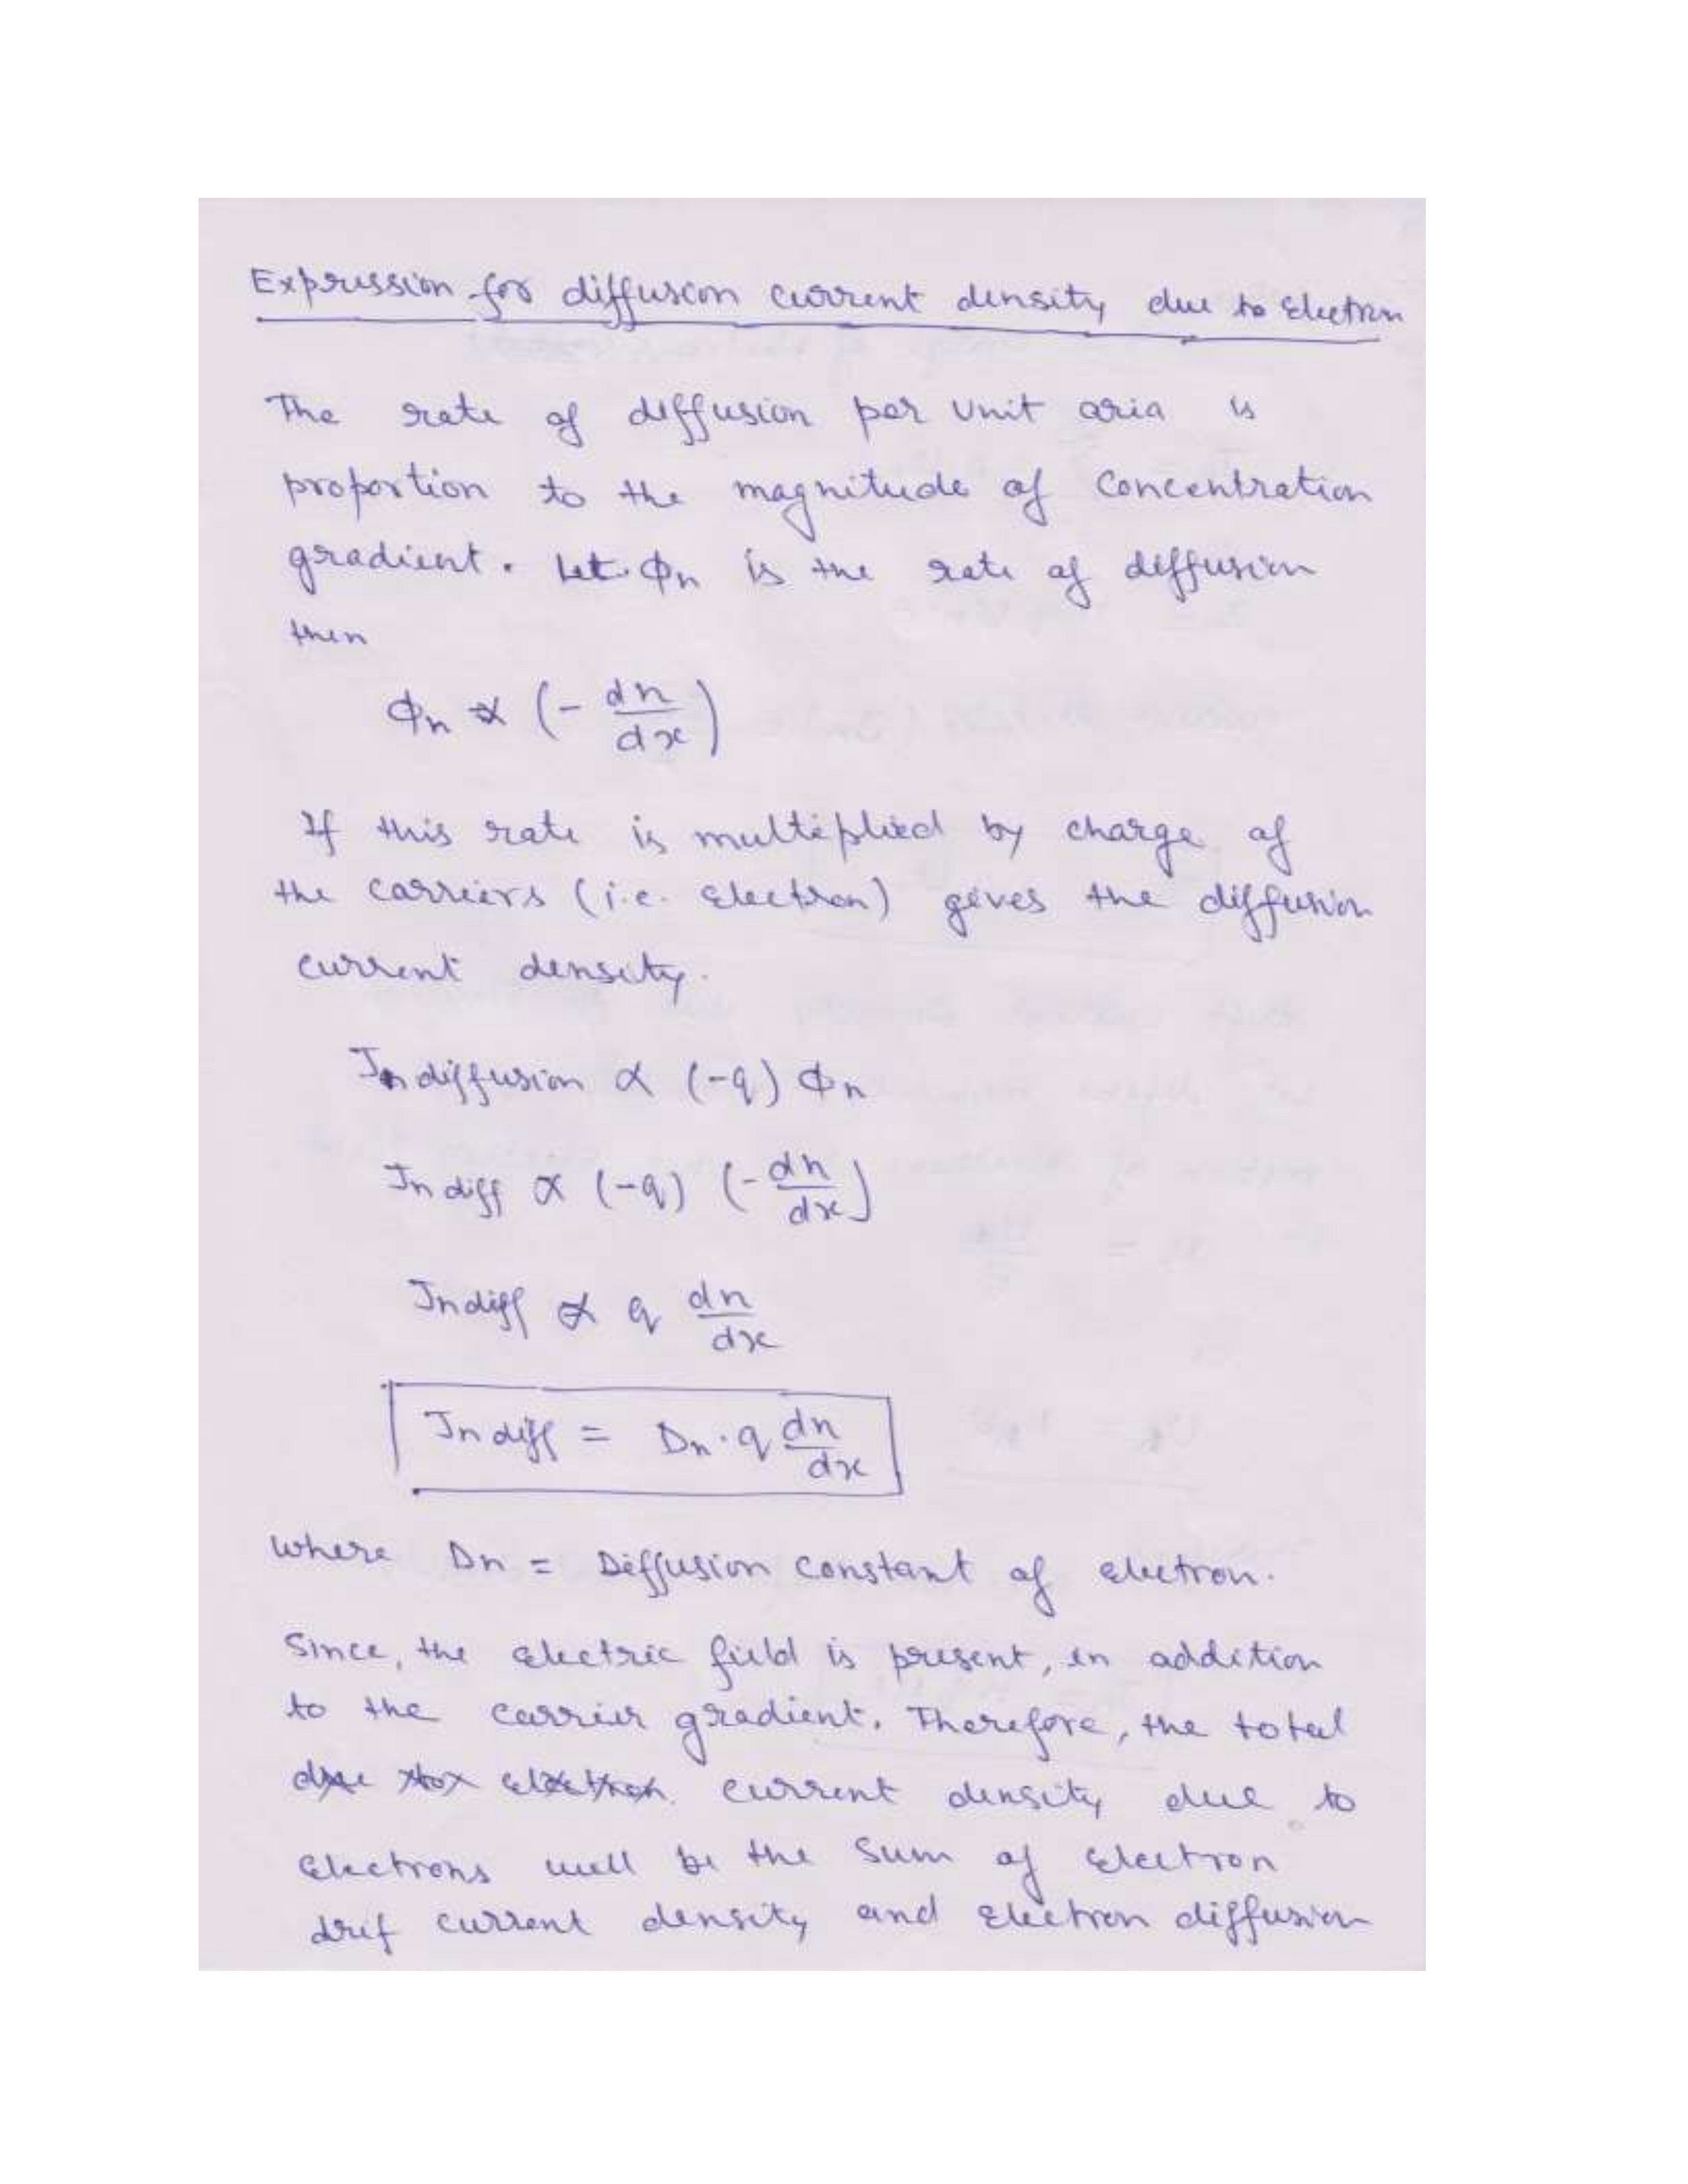 Expression for diffusion current density due to Electron
The rate of diffusion per unit aria is
proportion to the magnitude of concentration
gradient. Let ϕn is the rate of diffusion
then
ϕn ∝ (- dn/dx)
If this rate is multiplied by charge of
the carriers (i.e. electron) gives the diffusion
current density.
Jn diffusion ∝ (-q) ϕn
Jn diff ∝ (-q) (- dn/dx)
Jn diff ∝ q dn/dx
Jn diff = Dn . q dn/dx
where Dn = Diffusion constant of electron.
Since, the electric field is present, in addition
to the carrier gradient. Therefore, the total
due to electron. current density due to
Electrons will be the sum of electron
drif current density and electron diffusion